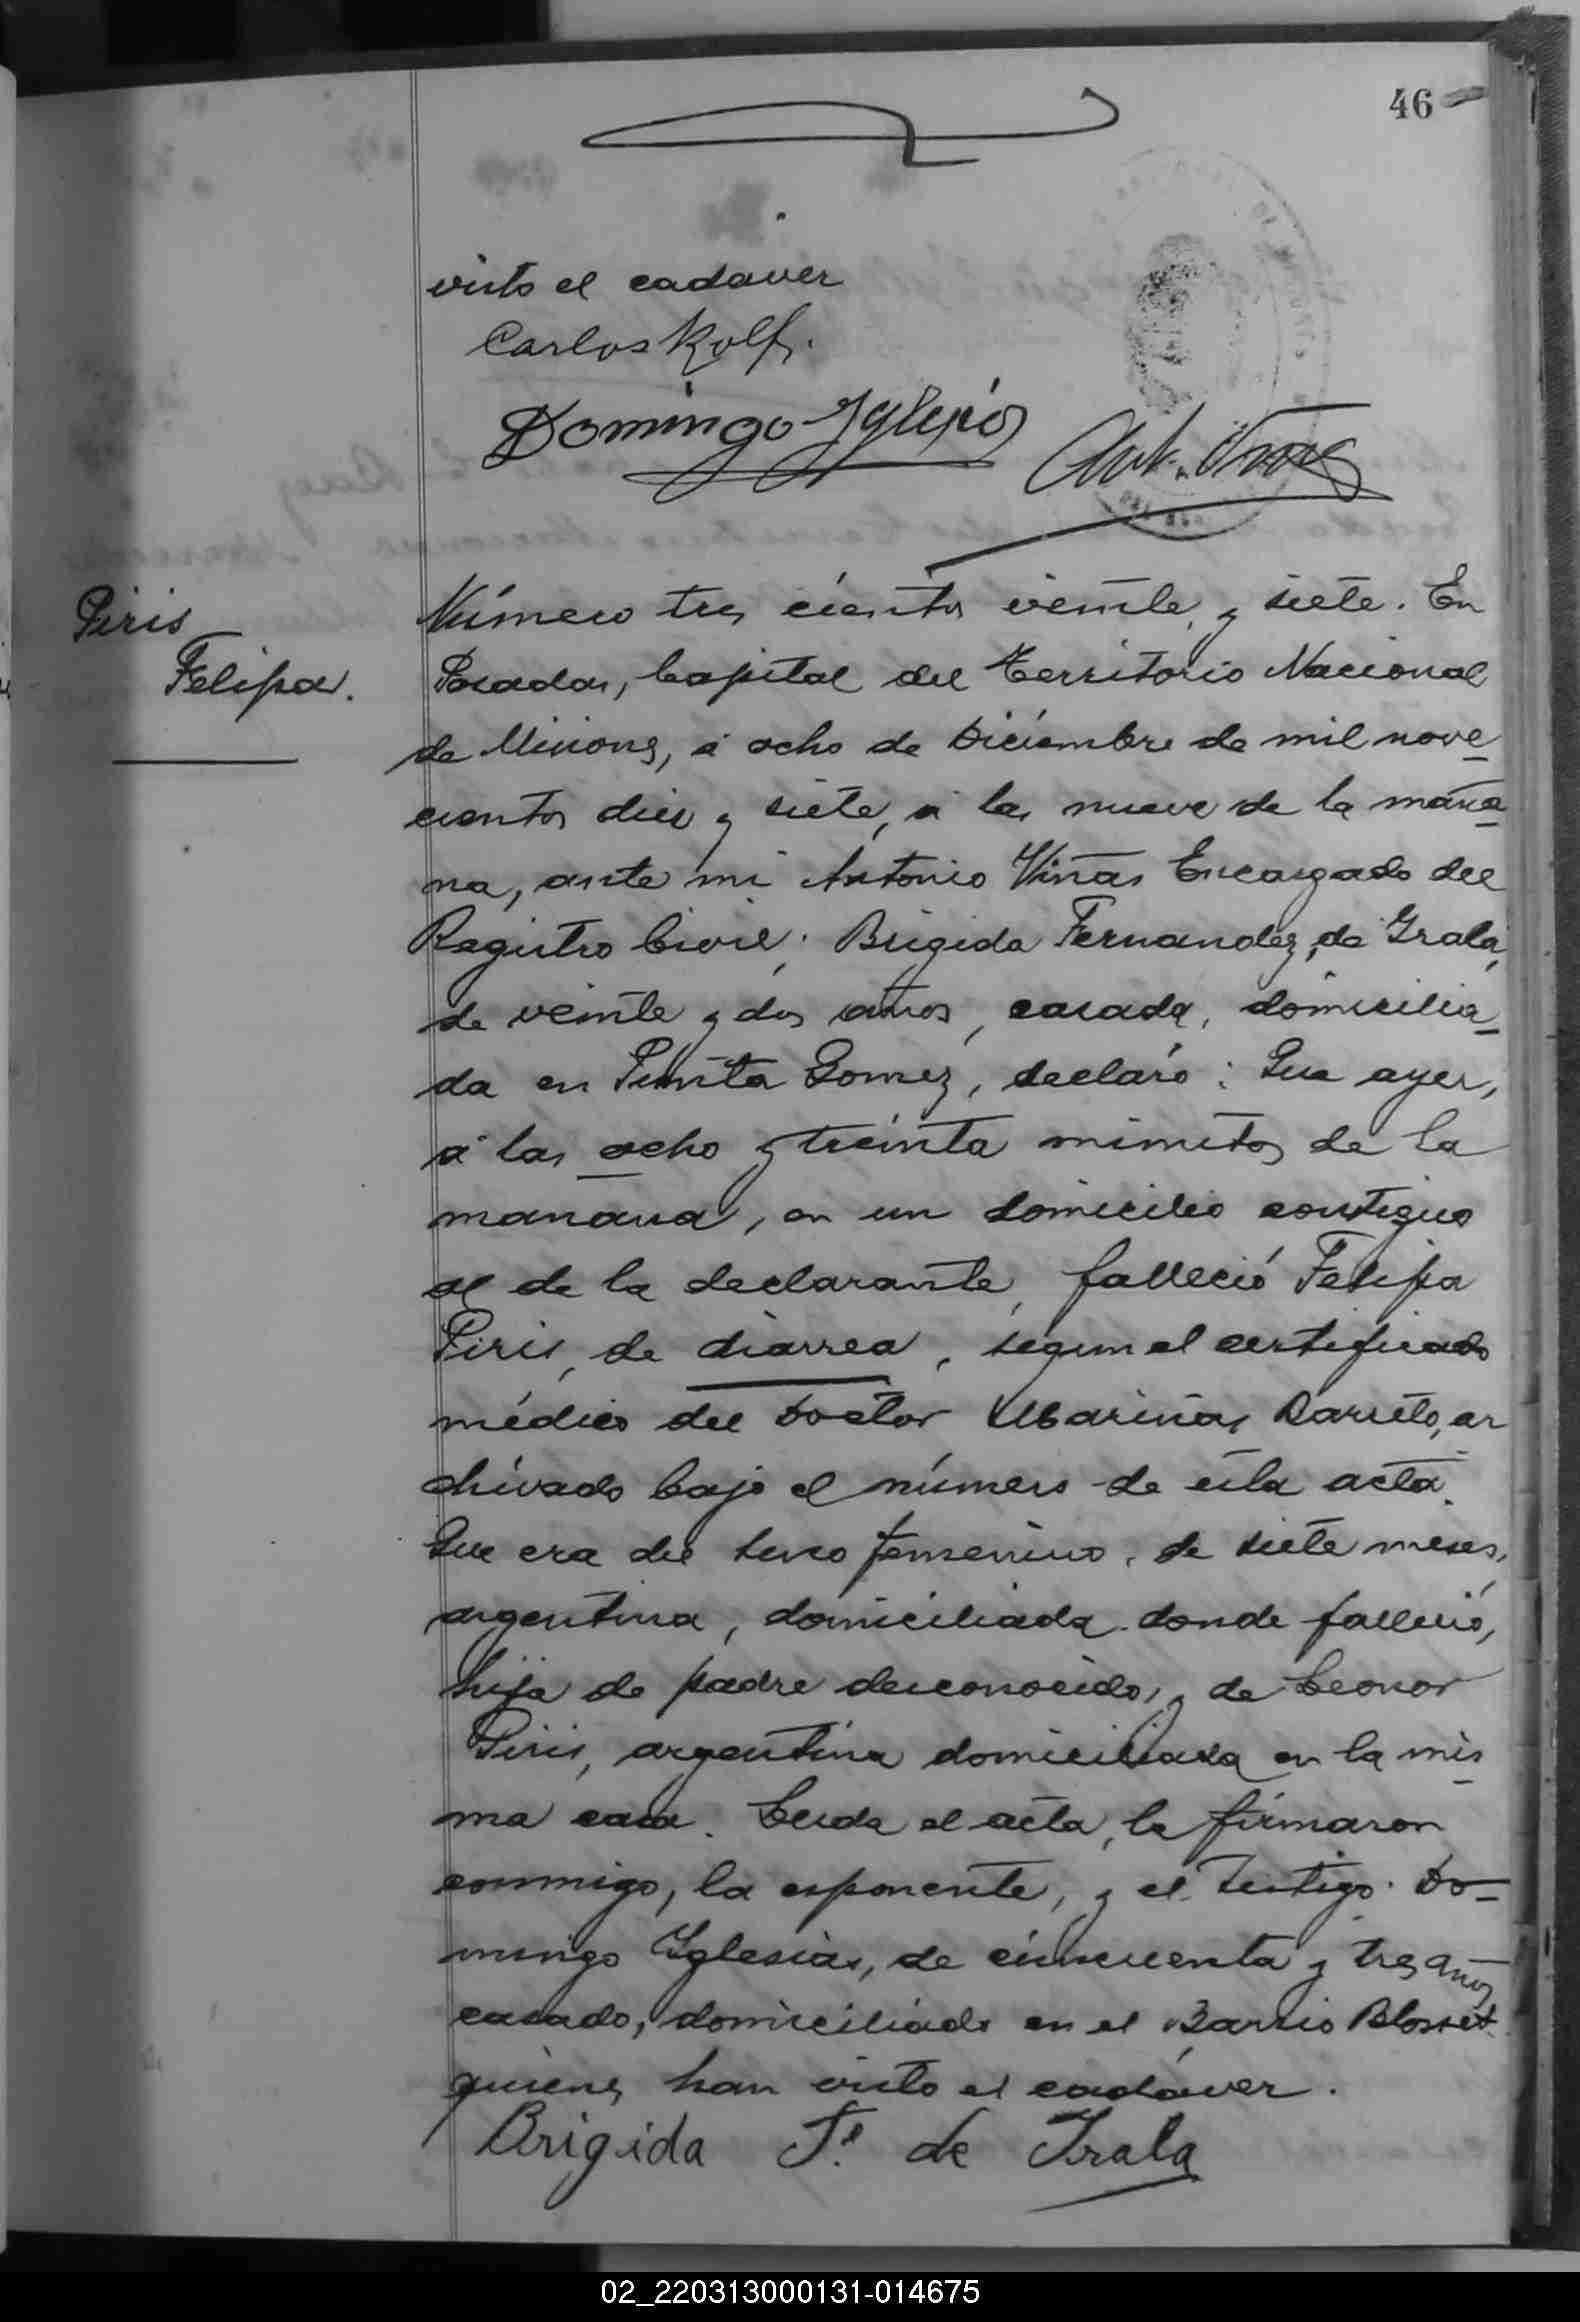 46
visto el cadaver
Carlos Rolf.
Domingo Iglesias
Ant. Viñas
Piris
Felipa.
Número tres cientos veinte y siete. En
Posadas, Capital del Territorio Nacional
de Misiones, á ocho de Diciembre de mil nove-
cientos diez y siete, á las nueve de la maña-
na, ante mi Antonio Viñas Encargado del
Registro Civil; Brigida Fernandez de Irala,
de veinte y dos años, casada, domicilia-
da en Punta Gomez, declaró: Que ayer,
á las ocho y treinta minutos de la
mañana, en un domicilio contiguo
al de la declarante, falleció Felipa
Piris, de diarrea, segun el certificado
médico del Doctor Mariñas Barreto, ar
chivado bajo el número de esta acta.
Que era del sexo femenino, de siete meses,
argentina, domiciliada donde falleció,
hija de padre desconocido, y de Leonor
Piris, argentina domiciliada en la mis
ma casa. Leida el acta, la firmaron
conmigo, la esponente, y el testigo Do-
mingo Iglesias, de cincuenta y tres años
casado, domiciliado en el Barrio Blosset
quienes han visto el cadáver.
Brigida F. de Irala
02_220313000131-014675